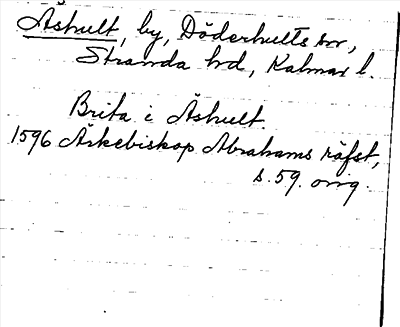 Åshult, by, Döderhults sn,
Stranda hd, Kalmar l.
Brita i Åshult.
1596 Ärkebiskop Abrahams räfst,
s. 59. orig.